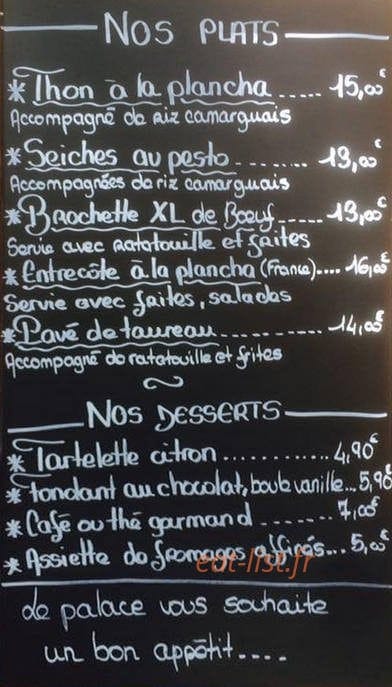 Nos plats
* Thon à la plancha ..... 15,00€
Accompagné de riz camarguais
* Seiches au pesto ........ 13,00€
Accompagnées de riz camarguais
* Brochette XL de Boeuf ..... 19,00€
Servie avec ratatouille et frites
* Entrecôte à la plancha (France).... 16,00€
Servie avec frites, salades
* Pavé de taureau .......... 14,00€
Accompagné de ratatouille et frites
Nos desserts
* Tartelette citron ............ 4,90€
* fondant au chocolat, boule vanille... 5,90€
* Café ou thé gourmand ........ 7,00€
* Assiette de fromages affinés... 5,00€
eat-list.fr
Le palace vous souhaite
un bon appétit....